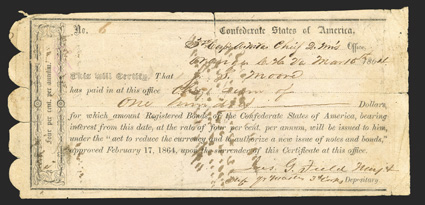 Four per cent. per annum.
No. 6 Confederate States of America,
Chief Office,
186
This will Certify, That
Moore
has paid in at this office
One hundred Dollars,
for which amount Registered Bonds of the Confederate States of America, bearing
interest from this date, at the rate of four per cent. per annum, will be issued to him,
under the "act to reduce the currency and to authorize a new issue of notes and bonds,"
approved February 17, 1864, upon the surrender of this Certificate at this office.
Jas. G. Field
Depositary.